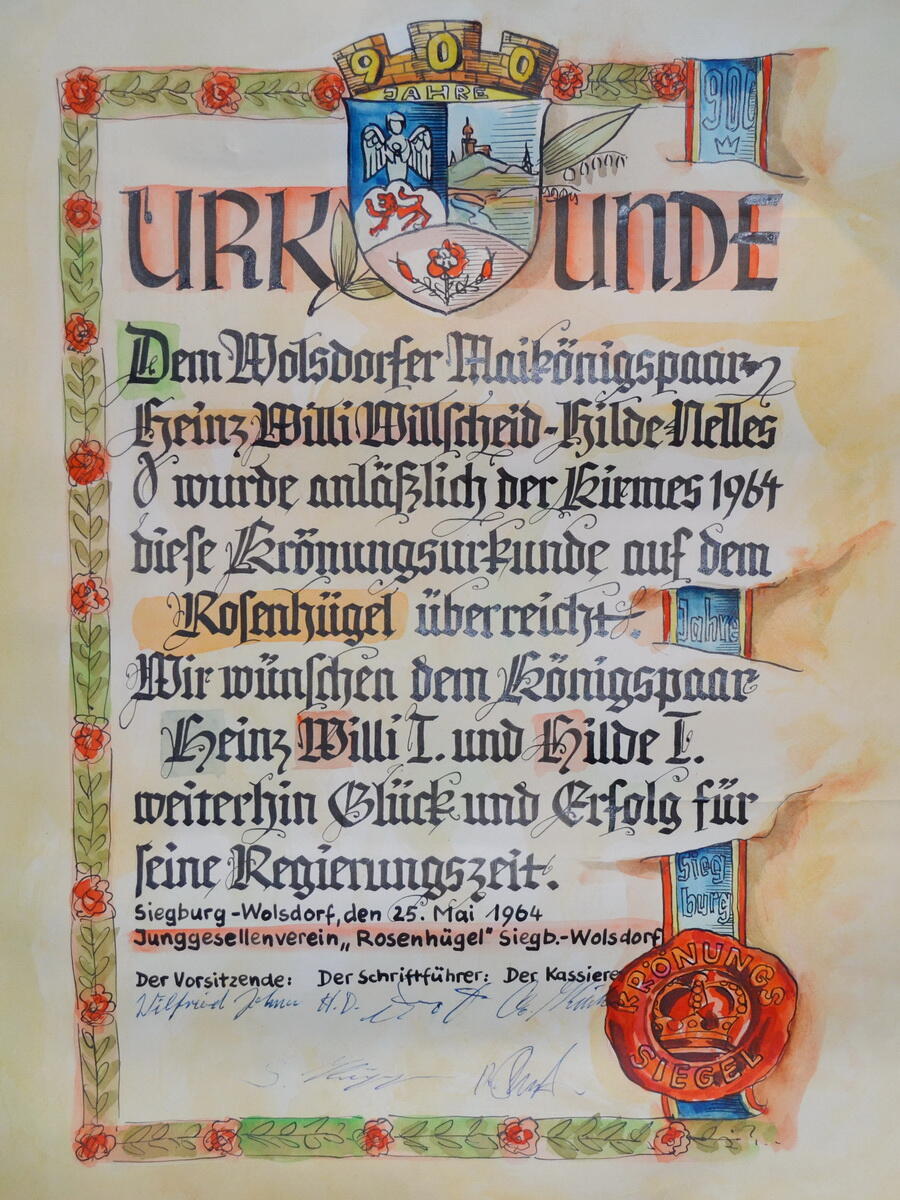 900
JAHRE
900
URKUNDE
Dem Wolsdorfer Maikönigspaar
Heinz Willi Willscheid - Hilde Nelles
wurde anläßlich der Kirmes 1964
diese Krönungsurkunde auf dem
Rosenhügel überreicht.
Jahre
Wir wünschen dem Königspaar
Heinz Willi I. und Hilde I.
weiterhin Glück und Erfolg für
seine Regierungszeit.
Sieg
burg
Siegburg-Wolsdorf, den 25. Mai 1964
Junggesellenverein „Rosenhügel" Siegb.-Wolsdorf
Der Vorsitzende: Der Schriftführer: Der Kassierer
Wilfried H.D.
KRÖNUNGS
SIEGEL